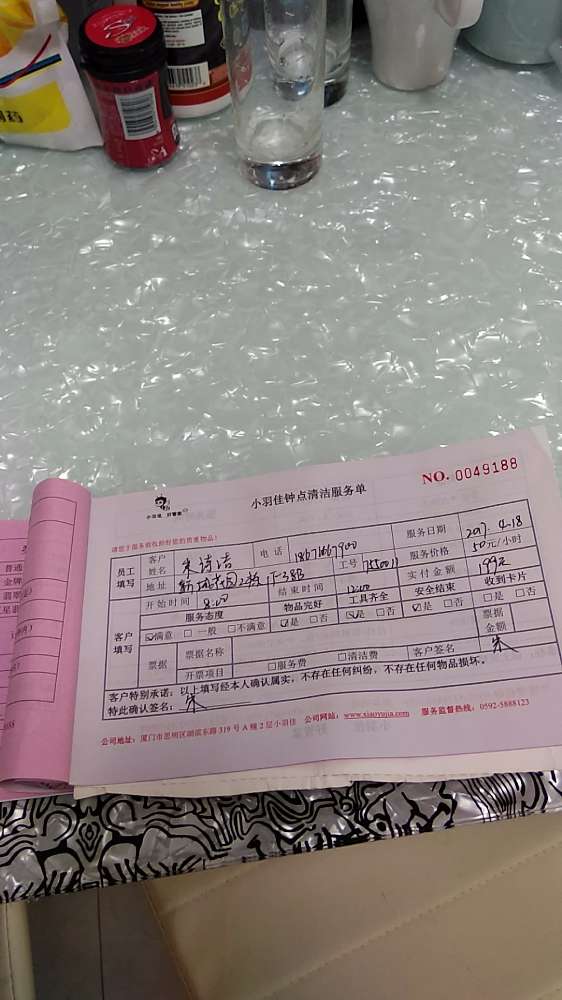 NO. 0049188
小羽佳钟点清洁服务单
小羽佳，好管家
请您于服务前收拾好您的贵重物品！
员工填写 客户姓名 朱诗洁 电话 服务日期
地址 工号 服务价格 50元/小时
开始时间 8:00 结束时间 12:00 实付金额 199元
客户填写 服务态度 物品完好 工具齐全 安全结束 收到卡片
☑满意 □一般 □不满意 ☑是 □否 ☑是 □否 ☑是 □否 □是 □否
票据 票据名称 票据金额
开票项目 □服务费 □清洁费 客户签名 朱
客户特别承诺：以上填写经本人确认属实，不存在任何纠纷，不存在任何物品损坏。
特此确认签名：朱
公司地址：厦门市思明区湖滨东路319号A幢2层小羽佳 公司网站：www.xiaoyujia.com 服务监督热线：0592-5888123